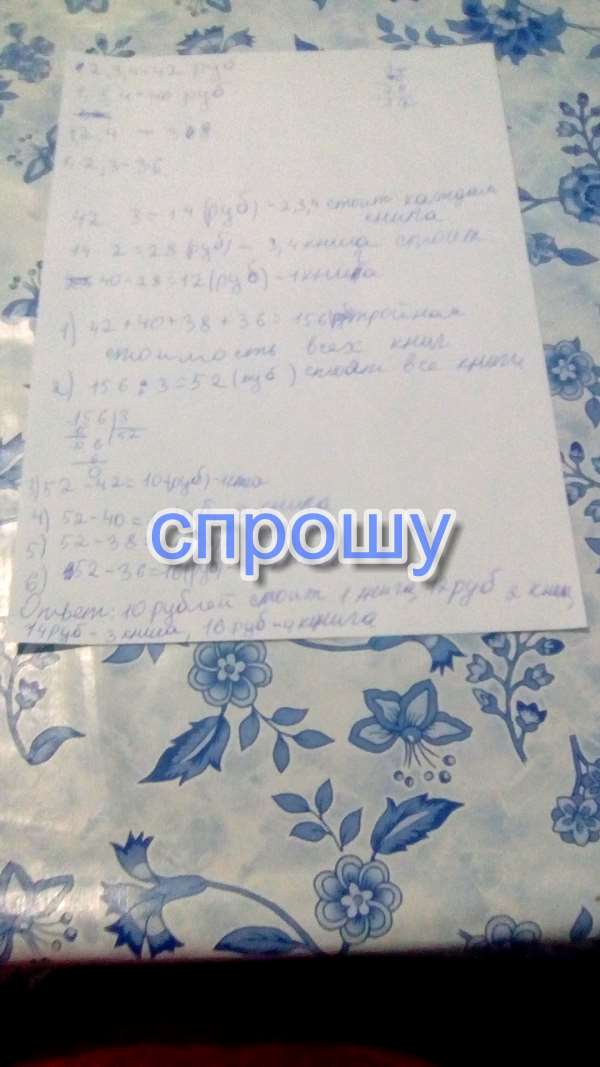 2,3,4=42 руб
1,3,4=40 руб
1,2,4 - 38
1,2,3-36
42 3=14(руб)-2,3,4 стоит каждая
книга
14 2=28(руб)- 3,4 книга стоит
40-28=12(руб)-1 книга
1) 42+40+38+36=156 тройная
стоимость всех книг
2) 156:3=52(руб) стоят все книги
156 3
6 52
6
6
0
3) 52-42=10(руб)-1
4) 52-40= книга
5) 52-38
спрошу
6) 52-36=16(руб
Ответ: 10 рублей стоит 1 книга, руб 2 книг,
14 руб-3 книга, 16 руб-4 книга